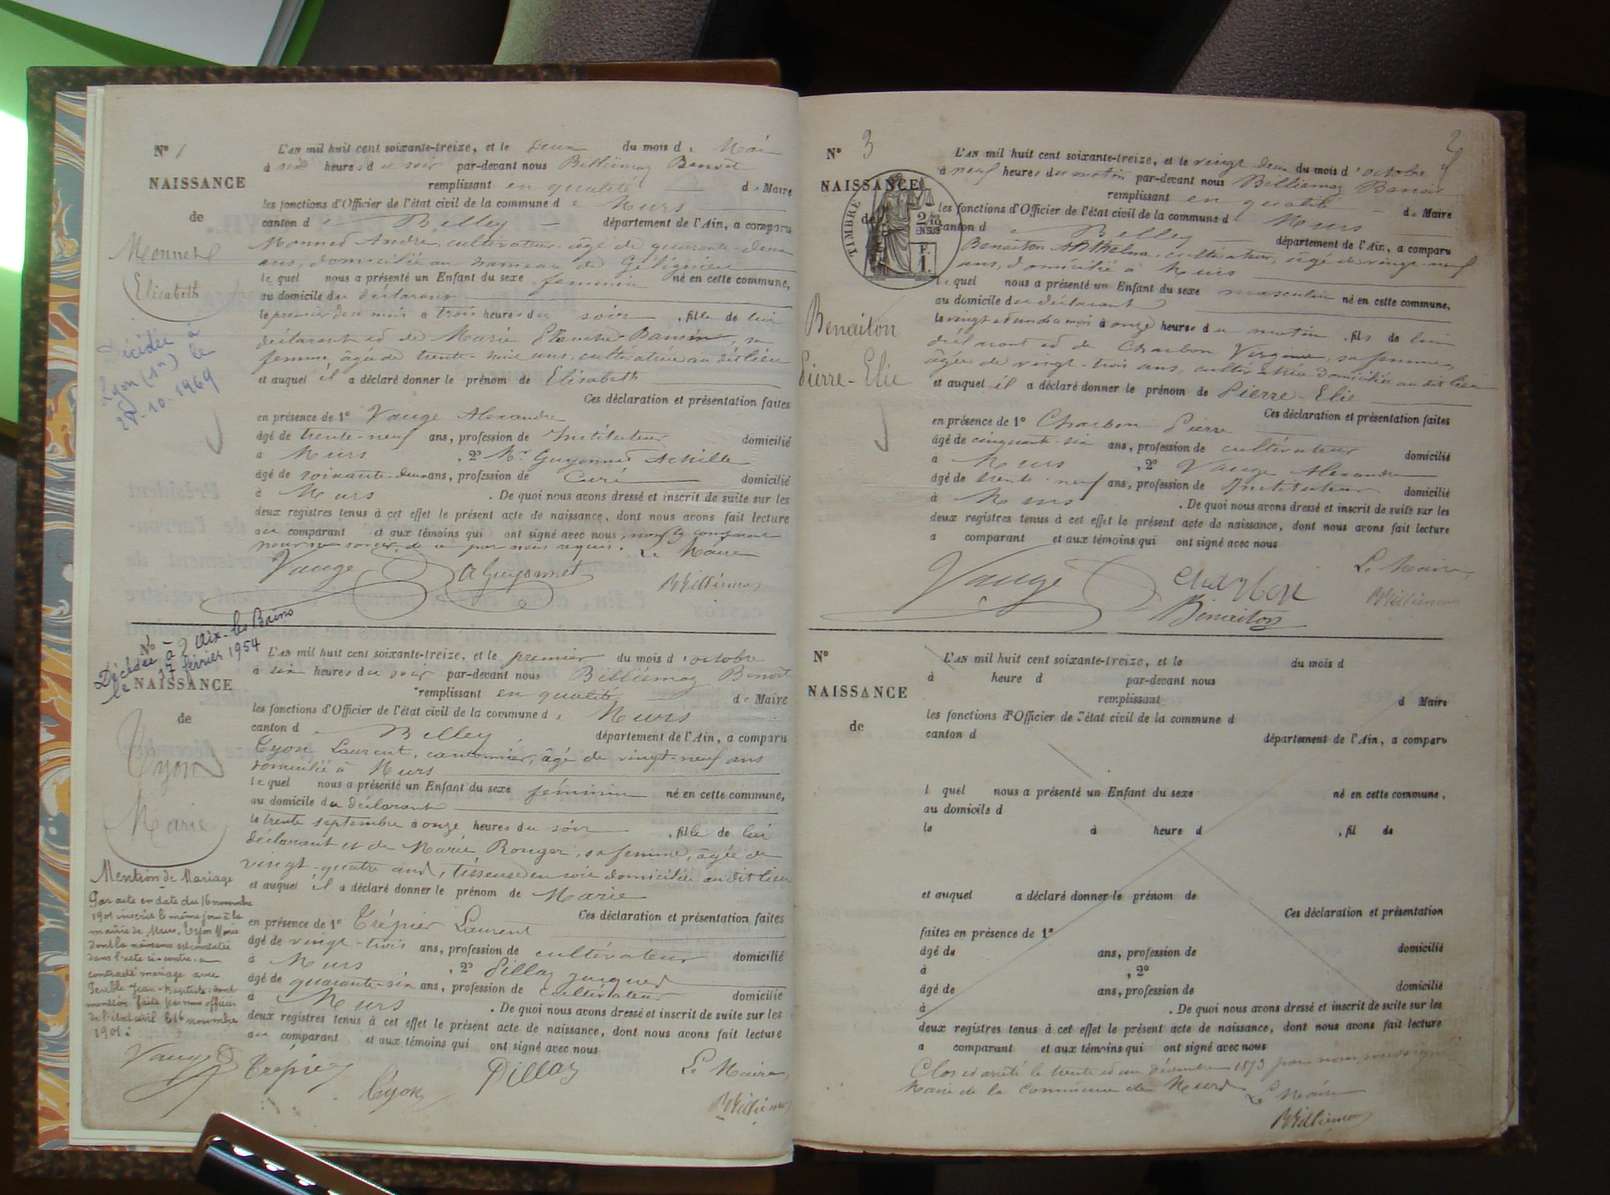 N° 1
NAISSANCE
de
Monnet
Elisabeth
Décédée à
Lyon (1er) le
10. 1969
L'AN mil huit cent soixante-treize, et le Deux du mois de Mai
à six heures du soir par-devant nous Billiemaz Benoît
remplissant en qualité de Maire
les fonctions d'Officier de l'état civil de la commune de Murs
canton de Belley département de l'Ain, a comparu
Monnet André, cultivateur âgé de quarante-deux
ans, domicilié au hameau de Gélignieu
lequel nous a présenté un Enfant du sexe féminin né en cette commune,
au domicile du déclarant
le premier du mois à trois heures du soir, fille de lui
déclarant et de Marie Blanche, sa
femme, âgée de trente-huit ans, cultivatrice au dit lieu
et auquel il a déclaré donner le prénom de Elisabeth
Ces déclaration et présentation faites
en présence de 1° Vauge Alexandre
âgé de trente-neuf ans, profession de Instituteur domicilié
à Murs, 2° Mr Guyonnet Achille
âgé de soixante-deux ans, profession de Curé domicilié
à Murs. De quoi nous avons dressé et inscrit de suite sur les
deux registres tenus à cet effet le présent acte de naissance, dont nous avons fait lecture
au comparant et aux témoins qui ont signé avec nous, non le comparant
pour ne savoir, de ce par nous requis. Le Maire
Vauge A Guyonnet BBilliemaz
N° 2
Décédée à Aix-les-Bains
le 17 février 1954
NAISSANCE
de
Cyon
Marie
Mention de Mariage
Par acte en date du 16 novembre
1901 inscrit le même jour à la
mairie de Murs, Cyon Marie
dont la naissance est constatée
dans l'acte ci-contre a
contracté mariage avec
Jean-Baptiste, dont
mention faite par nous officier
de l'état civil le 16 novembre
1901.
L'AN mil huit cent soixante-treize, et le premier du mois d'octobre
à six heures du soir par-devant nous Billiemaz Benoît
remplissant en qualité de Maire
les fonctions d'Officier de l'état civil de la commune de Murs
canton de Belley département de l'Ain, a comparu
Cyon Laurent, cantonnier, âgé de vingt-neuf ans
domicilié à Murs
lequel nous a présenté un Enfant du sexe féminin né en cette commune,
au domicile du déclarant
le trente septembre à onze heures du soir, fille de lui
déclarant et de Marie Rouger, sa femme, âgée de
vingt-quatre ans, tisseuse en soie domiciliée au dit lieu
et auquel il a déclaré donner le prénom de Marie
Ces déclaration et présentation faites
en présence de 1° Trépier Laurent
âgé de vingt-trois ans, profession de cultivateur domicilié
à Murs, 2° Pillaz Jacques
âgé de quarante-six ans, profession de cultivateur domicilié
à Murs. De quoi nous avons dressé et inscrit de suite sur les
deux registres tenus à cet effet le présent acte de naissance, dont nous avons fait lecture
au comparant et aux témoins qui ont signé avec nous
Vauge Trépier Cyon Pillaz Le Maire
BBilliemaz
N° 3
NAISSANCE
de
TIMBRE
Benaiton
Pierre-Elie
L'AN mil huit cent soixante-treize, et le vingt deux du mois d'octobre
à neuf heures du matin par-devant nous Billiemaz Benoît
remplissant en qualité de Maire
les fonctions d'Officier de l'état civil de la commune de Murs
canton de Belley département de l'Ain, a comparu
Benaiton Anthelme, cultivateur, âgé de vingt-neuf
ans, domicilié à Murs
lequel nous a présenté un Enfant du sexe masculin né en cette commune,
au domicile du déclarant
le vingt et un du mois à onze heures du matin, fils de lui
déclarant et de Charbon Virginie, sa femme,
âgée de vingt-trois ans, cultivatrice domiciliée au dit lieu
et auquel il a déclaré donner le prénom de Pierre-Elie
Ces déclaration et présentation faites
en présence de 1° Charbon Pierre
âgé de cinquante-six ans, profession de cultivateur domicilié
à Murs, 2° Vauge Alexandre
âgé de trente-neuf ans, profession de Instituteur domicilié
à Murs. De quoi nous avons dressé et inscrit de suite sur les
deux registres tenus à cet effet le présent acte de naissance, dont nous avons fait lecture
a comparant et aux témoins qui ont signé avec nous
Le Maire,
Vauge Charbon BBilliemaz
Benaiton
N°
NAISSANCE
de
L'AN mil huit cent soixante-treize, et le du mois d
à heure d par-devant nous
remplissant d Maire
les fonctions d'Officier de l'état civil de la commune d
canton d département de l'Ain, a comparu
l quel nous a présenté un Enfant du sexe né en cette commune,
au domicile d
le à heure d , fil de
et auquel a déclaré donner le prénom de
Ces déclaration et présentation
faites en présence de 1°
âgé de ans, profession de domicilié
à , 2°
âgé de ans, profession de domicilié
à . De quoi nous avons dressé et inscrit de suite sur les
deux registres tenus à cet effet le présent acte de naissance, dont nous avons fait lecture
a comparant et aux témoins qui ont signé avec nous
Clos et arrêté le trente et un décembre 1873 par nous soussigné
Maire de la Commune de Murs Le Maire
BBilliemaz